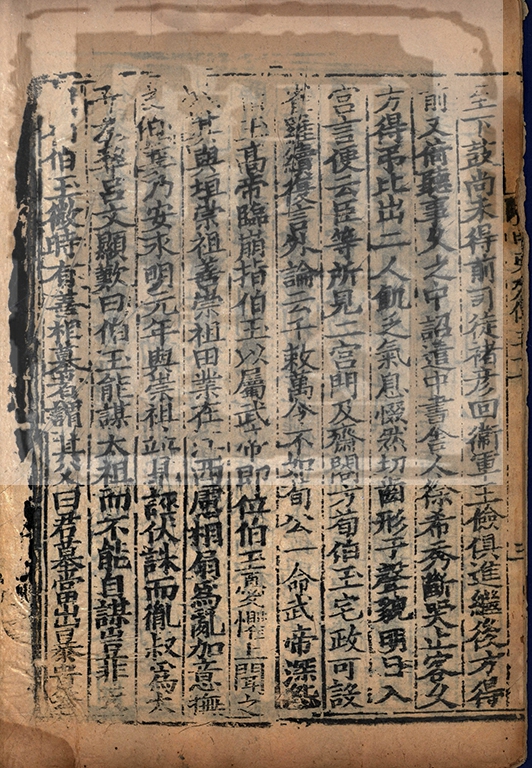 至下鼓尚未得前司徒褚彦回衛軍王儉俱進繼後方得
前又倚聽事久之中詔遣中書舍人徐希秀斷哭止客久
方得弔比出二人飢乏氣息惙然切齒形于聲貌明日入
宮言便云臣等所見二宮門及齋閤方荀伯玉宅政可設
雀羅續復言外論云千敕萬令不如荀公一命武帝深
高帝臨崩指伯玉以屬武帝即位伯玉憂懼上聞之
其與垣崇祖善崇祖田業在江西慮相扇為亂加意撫
伯玉乃安永明元年與崇祖並見誣伏誅而胤叔為太
呂文顯歎曰伯玉能謀太祖而不能自謀豈非
伯玉微時有善相墓者謂其父曰君墓當出暴貴